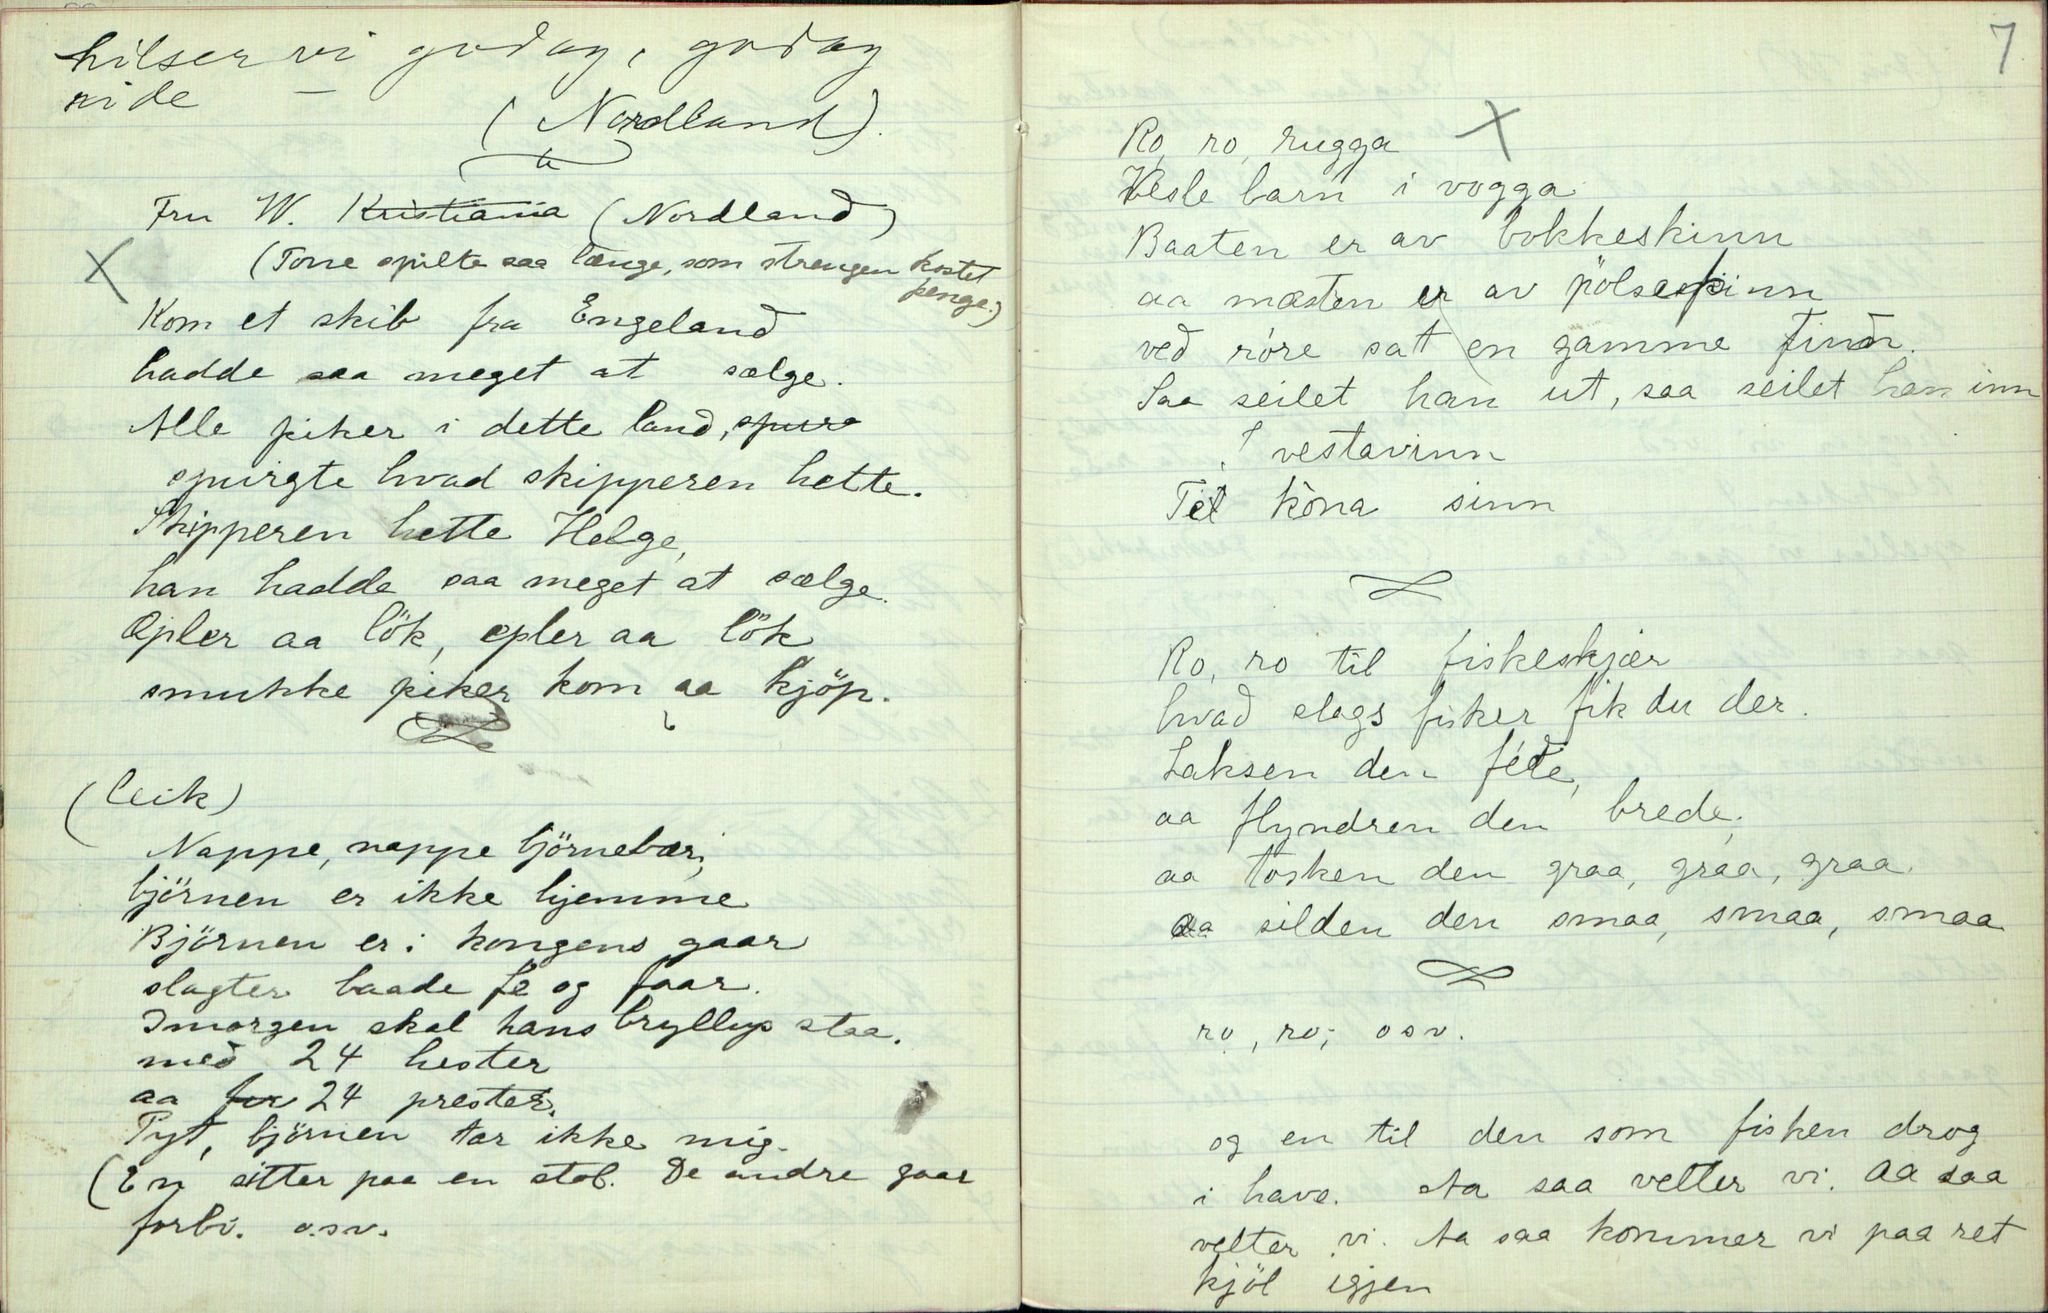 hilser vi godag, godag
ride —
(Nordland).
Fru W. Kristiania (Nordland)
(Tone spilte saa længe, som strengen kostet
penge.)
Kom et skib fra Engeland
hadde saa meget at sælge.
Alle piker i dette land, spure
spurgte hvad skipperen hette.
Skipperen hette Helge,
han hadde saa meget at sælge.
Epler aa lök, epler aa lök
smukke piker kom aa kjöp.
(leik)
Nappe, nappe björnebær,
björnen er ikke hjemme
Björnen er i kongens gaar
slagter baade fe og faar.
Imorgen skal hans bryllup staa.
med 24 hester
aa for 24 prester.
Pyt, björnen tar ikke mig.
(En sitter paa en stol. De andre gaar
forbi. o.s.v.
7
Ro, ro, rugga
Vesle barn i vogga
Baaten er av bokkeskinn
aa masten er av pölsepinn
ved röre sat en gamme Finn.
Saa seilet han ut, saa seilet han inn
I vestavinn
Tel kona sinn
Ro, ro til fiskeskjær
hvad slags fisker fik du der.
Laksen den fede,
aa flyndren den brede,
aa tosken den graa, graa, graa.
aa silden den smaa, smaa, smaa
ro, ro, osv.
og en til den som fisken drog
i have. Aa saa velter vi. Aa saa
velter vi. Aa saa kommer vi paa ret
kjöl igjen